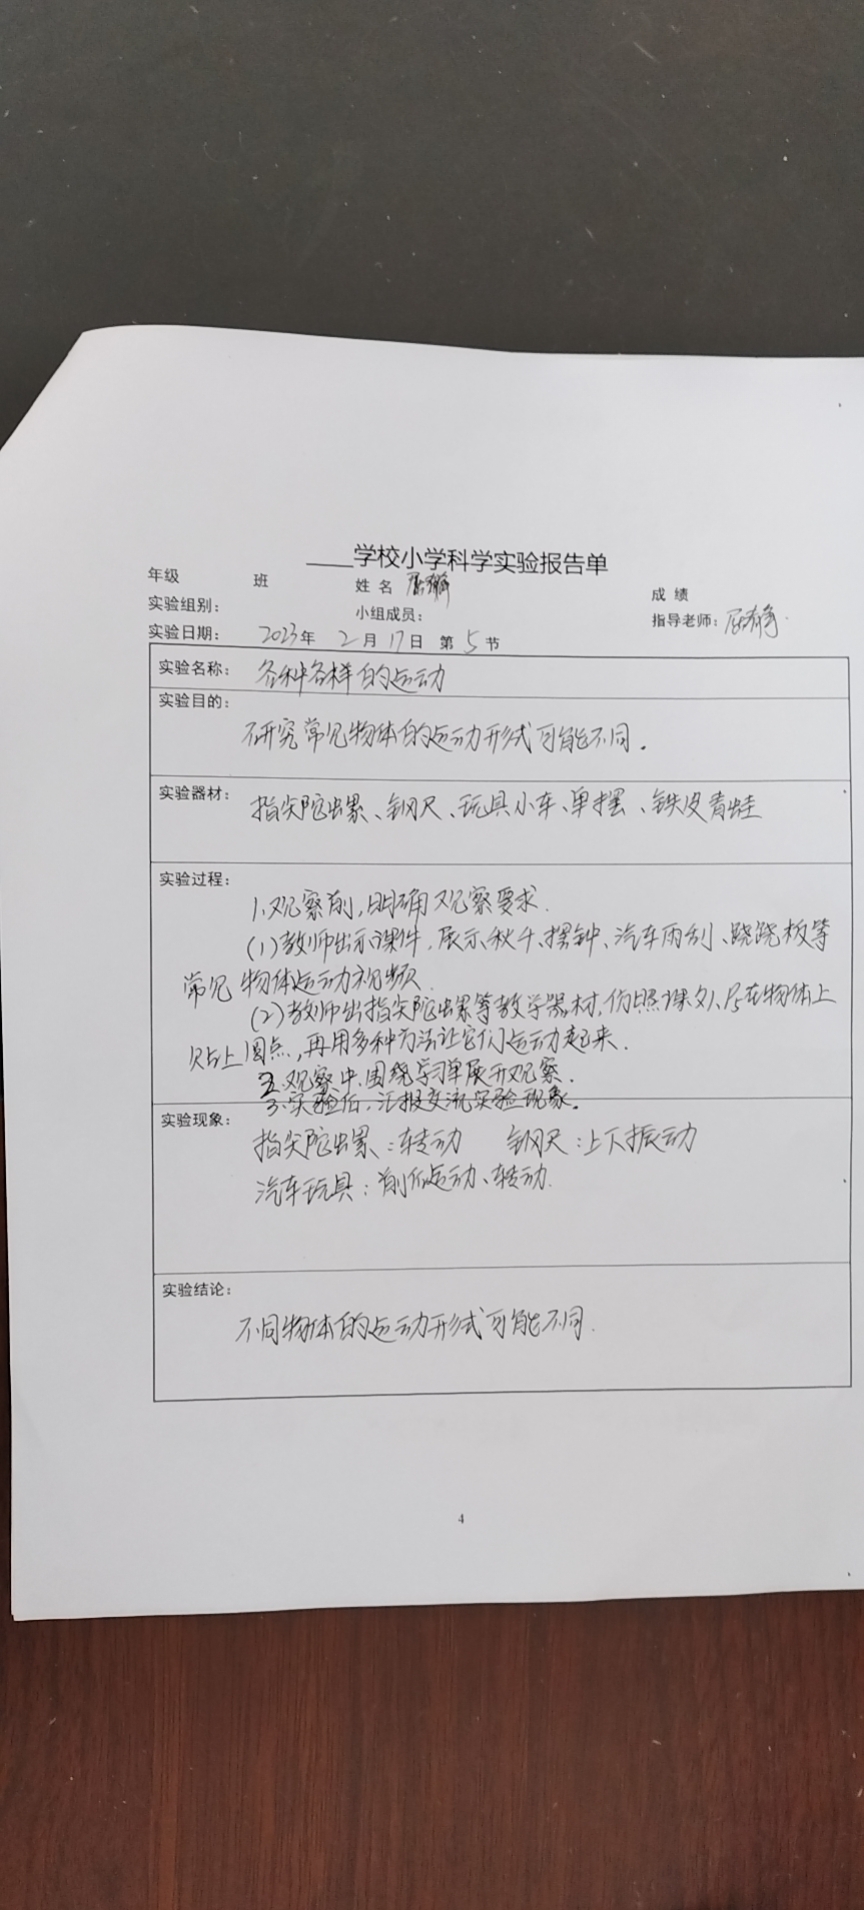 ____学校小学科学实验报告单
年级 班 姓 名 成 绩
实验组别： 小组成员： 指导老师：
实验日期： 2023年 2月17日 第5节
实验名称： 各种各样的运动
实验目的：
研究常见物体的运动形式可能不同。
实验器材： 指尖陀螺、钢尺、玩具小车、单摆、铁皮青蛙
实验过程：
1.观察前，明确观察要求.
(1)教师出示课件，展示秋千、摆钟、汽车雨刮、跷跷板等
常见物体运动视频.
(2)教师出指尖陀螺等教学器材，仿照课文，P5在物体上
贴上圆点，再用多种方法让它们运动起来.
2.观察中，围绕学习单展开观察.
3.实验后，汇报交流实验现象。
实验现象：
指尖陀螺：转动 钢尺：上下振动
汽车玩具：前后运动、转动.
实验结论：
不同物体的运动形式可能不同.
4